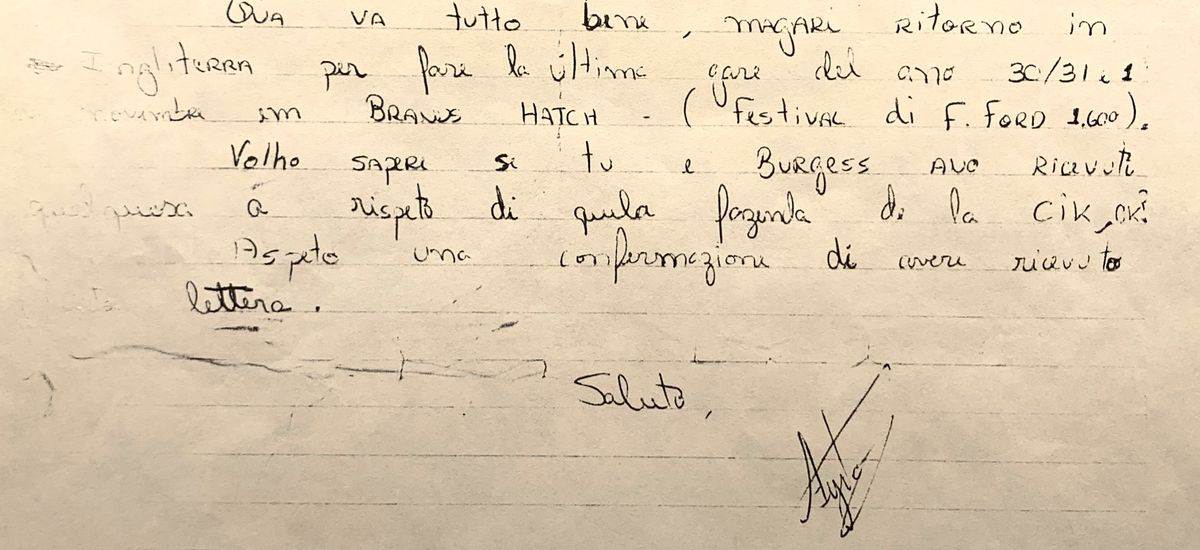 Qua va tutto bene, magari ritorno in
Ingliterra per fare la última gare del ano 30/31 e 1
novembre im Brands Hatch - (Festival di F. Ford 1.600).
Volho saperi si tu e Burgess avo ricevuti
qualquosa á rispeto di quela fazenda di la CIK, OK?
Aspeto una confermazione di avere ricevuto
lettera.
Saluto,
Ayrton